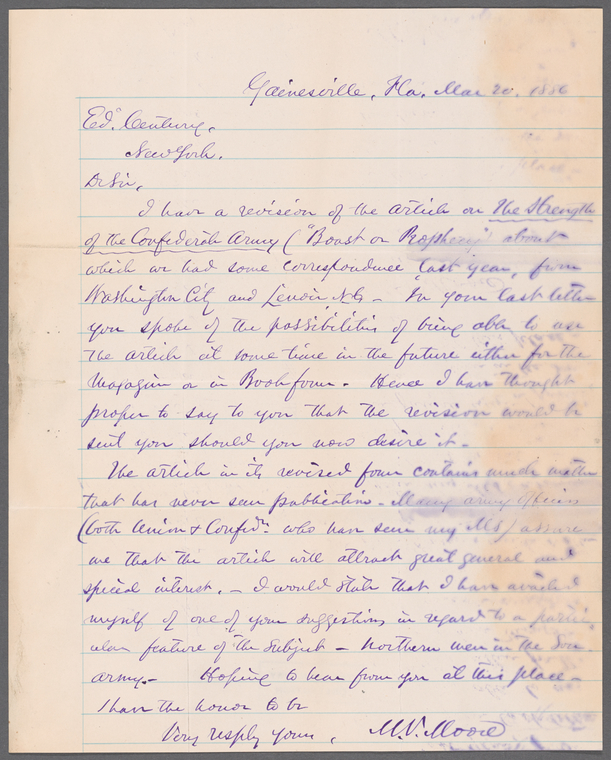 Gainesville, Fla. Mar 20. 1886
Ed. Century,
New York.
Dr Sir,
I have a revision of the article on The Strength
of the Confederate Army ("Boast or Prophecy") about
which we had some correspondence last year, from
Washington City and Lenoir, N.C. – In your last letter
you spoke of the possibilities of being able to use
the article at some time in the future either for the
Magazine or in Book form. Hence I have thought
proper to say to you that the revision would be
sent you should you now desire it –
The article in its revised form contains much matter
that has never seen publication – Many army officers
(both Union & Confed. who have seen my Ms) assure
me that the article will attract great general and
special interest. – I would state that I have availed
myself of one of your suggestions in regard to a particu-
ular feature of the Subject – Northern men in the Sou.
army. – Hoping to hear from you at this place –
I have the honor to be
Very resply yours, M.V. Moore